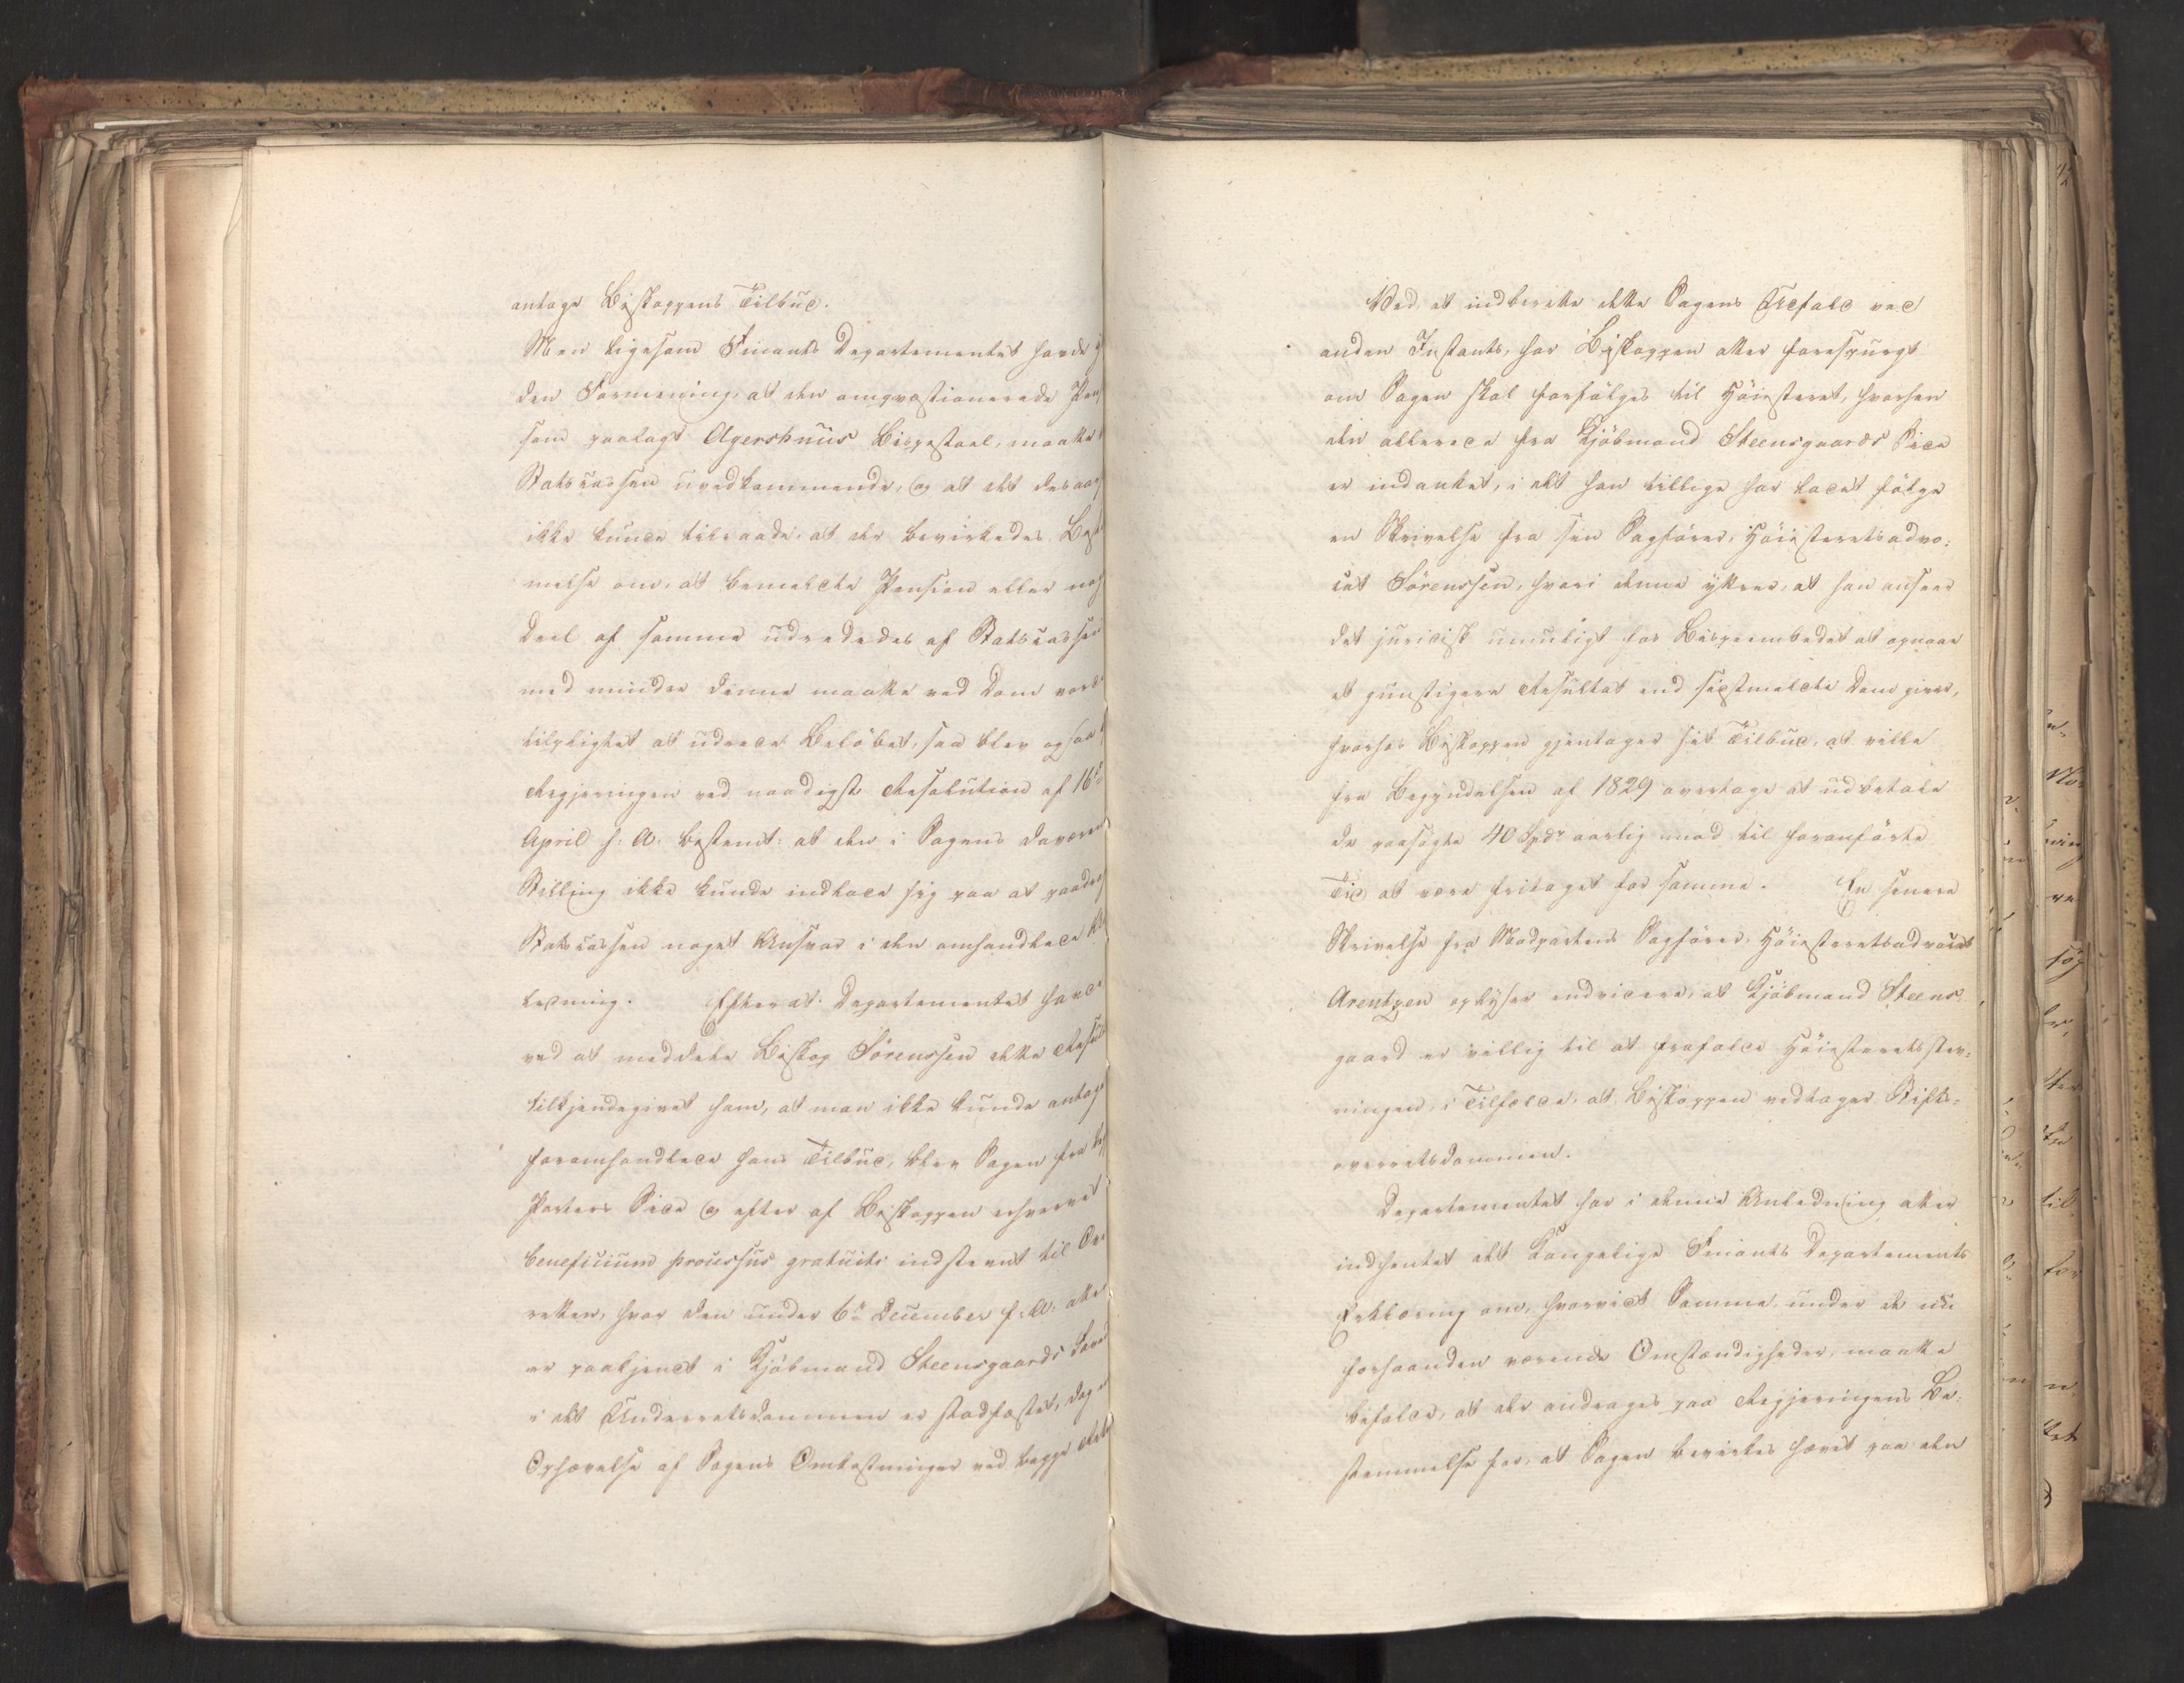 antage Biskoppens Tilbud.
Men ligesom Finants Departementet havde
den Formening, at den omqvæstionerede
som paalagt Agershuus Bispestoel, maatte
Statscassen uvedkommende, og at det desaar
ikke kunde tilraade, at der bevirkedes
melse om, at bemeldte Pension eller
Deel af samme udrededes af Statscassen
med mindre denne maatte ved Dom vorde
tilpligtet at udrede Beløbet, saa blev ogsaa
Regjeringen ved naadigst Resolution af 16de
April f: A: bestemt: at den i Sagens daværen
Stilling ikke kunde indlade sig paa at paadra
Statscassen noget Ansvar i den omhandlede
ledning. Efterat Departementet havde
ved at meddele Biskop Sörenssen dette Resul
tilkjendegivet ham, at man ikke kunde antage
foromhandlede hans Tilbud, blev Sagen fra
Parters Side og efter af Biskoppen erhvervet
beneficium processus gratuiti indstevnt til Ove
retten, hvor den under 6te December f: A: atter
er paakjendt i Kjöbmand Steensgaards Faveur
i det Underretsdommen er stadfæstet, dog
Ophævelse af Sagens Omkostninger ved begge Rette
Ved at indberette dette Sagens Udfald ved
anden Instants, har Biskoppen atter forespurgt
om Sagen skal forfölges til Höiesteret, hvorhen
den allerede fra Kjöbmand Steensgaards Side
er indanket, i det han tillige har ladet fölge
en Skrivelse fra sin Sagförer, Höiesteretsadvo=
cat Sörenssen, hvori denne yttrer, at han anseer
det juridisk umuligt for Bispeembedet at opnaae
et gunstigere Resultat end sidstmeldte Dom giver,
hvorhos Biskoppen gjentager sit Tilbud, at ville
fra Begyndelsen af 1829 overtage at udbetale
de paasögte 40 Spdr aarlig mod til foranförte
Tid at være fritaget for samme. En senere
Skrivelse fra Modpartens Sagförer, Höiesteretsadvocat
Arentzen oplyser endvidere, at Kjöbmand Steens
gaard er villig til at frafalde Höiesteretsstev=
ningen, i Tilfælde, at Biskoppen vedtager Stifts=
overretsdommen.
Departementet har i denne Anledning atter
indhentet det Kongelige Finants Departements
Erklæring om, hvorvidt Samme, under de nu
forhaanden værende Omstændigheder, maatte
befalde, at der andrages paa Regjeringens Be=
stemmelse for, at Sagen bevirkes hævet paa den